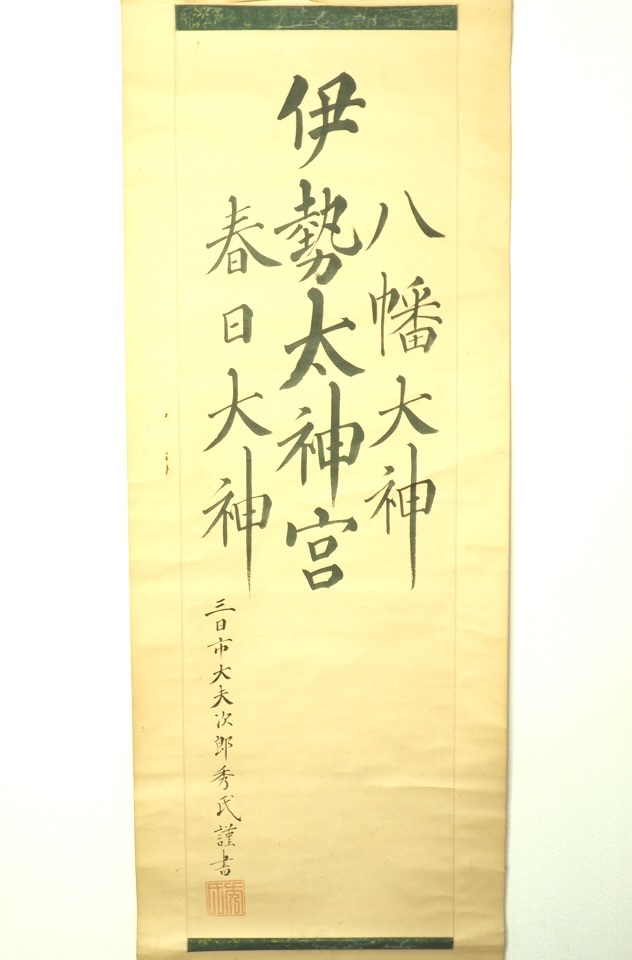 八幡大神
伊勢太神宮
春日大神
三日市大夫次郎秀氏謹書